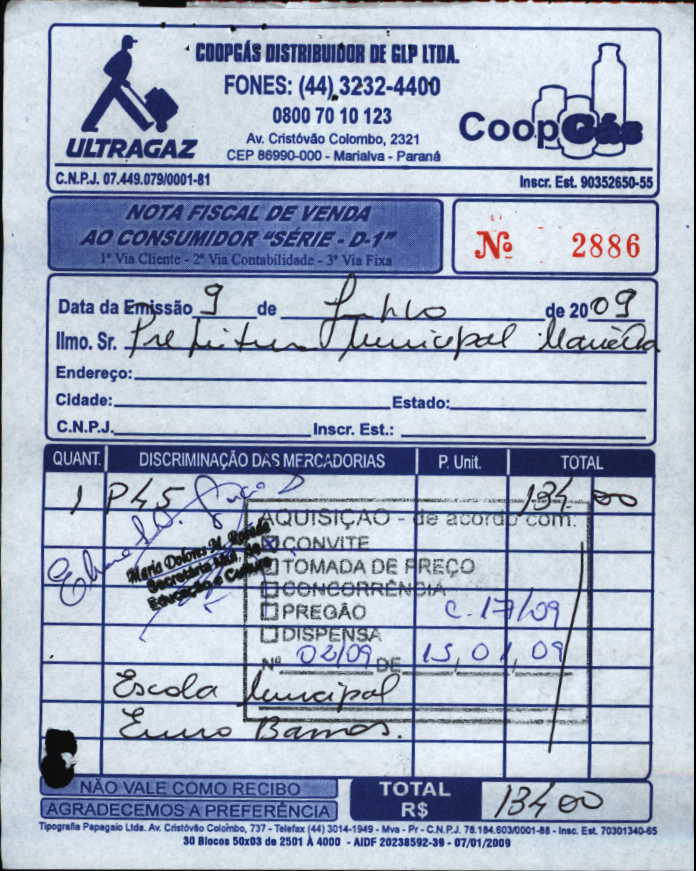 COOPGÁS DISTRIBUIDOR DE GLP LTDA.
FONES: (44) 3232-4400
0800 70 10 123
Av. Cristóvão Colombo, 2321
CEP 86990-000 - Marialva - Paraná
ULTRAGAZ
CoopGás
C.N.P.J. 07.449.079/0001-81
Inscr. Est. 90352650-55
NOTA FISCAL DE VENDA
AO CONSUMIDOR "SÉRIE - D-1"
1ª Via Cliente - 2ª Via Contabilidade - 3ª Via Fixa
Nº 2886
Data da Emissão 9 de de 2009
Ilmo. Sr. Prefeitura Municipal Marialva
Endereço:
Cidade: Estado:
C.N.P.J. Inscr. Est.:
QUANT. DISCRIMINAÇÃO DAS MERCADORIAS P. Unit. TOTAL
1 P45 134 00
AQUISIÇÃO - de acordo com:
CONVITE
TOMADA DE PREÇO
CONCORRÊNCIA
PREGÃO C. 17/09
DISPENSA
Nº 02/09 DE 15,01,09
Maria Dolores M.
Secretária Mun. de
Educação e Cultura
Escola Municipal
Barros.
NÃO VALE COMO RECIBO
AGRADECEMOS A PREFERÊNCIA
TOTAL
R$
134 00
Tipografia Papagaio Ltda. Av. Cristóvão Colombo, 737 - Telefax (44) 3014-1949 - Mva - Pr - C.N.P.J. 78.184.603/0001-88 - Insc. Est. 70301340-65
30 Blocos 50x03 de 2501 À 4000 - AIDF 20238592-39 - 07/01/2009